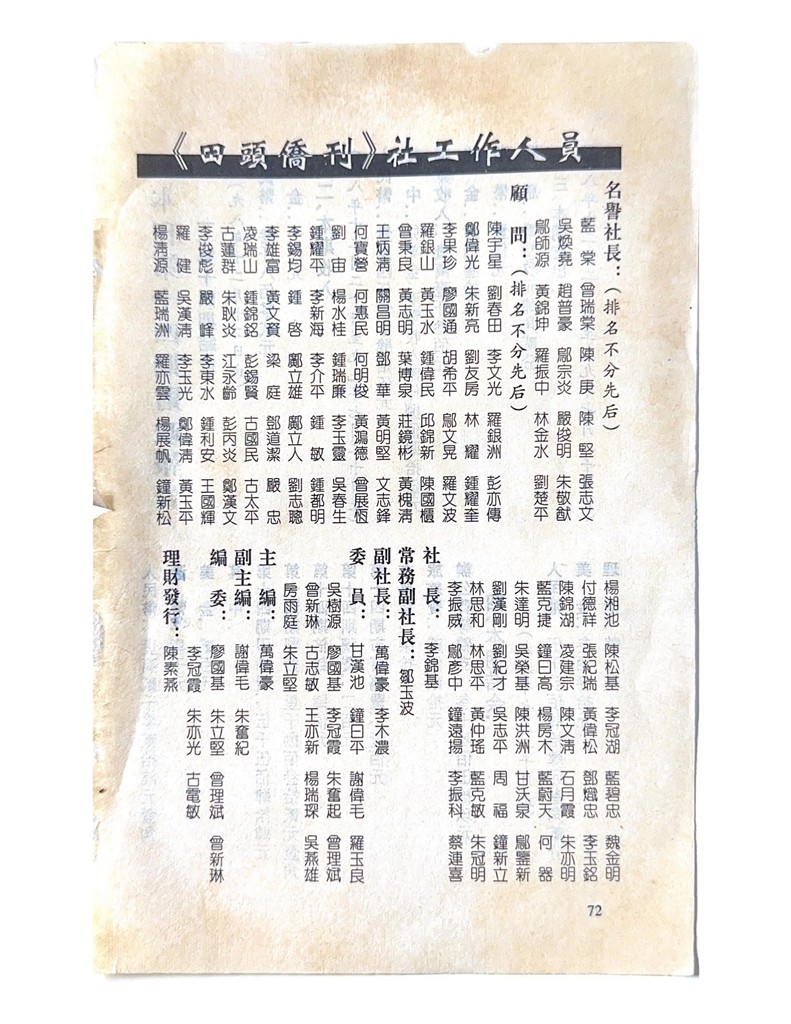 《田頭僑刊》社工作人員
名譽社長：（排名不分先后）
藍　棠　曾瑞棠　陳　庚　陳　堅　張志文
吳煥堯　趙普豪　鄺宗炎　嚴俊明　朱敬猷
鄺師源　黃錦坤　羅振中　林金水　劉楚平
顧　問：（排名不分先后）
陳宇星　劉春田　李文光　羅銀洲　彭亦傳
鄭偉光　朱新亮　劉友房　林　耀　鍾耀奎
李果珍　廖國通　胡希平　鄺文晃　羅文波
羅銀山　黃玉水　鍾偉民　邱錦新　陳國櫃
曾秉良　黃志明　葉博泉　莊鏡彬　黃槐清
王炳清　關昌明　鄧　華　黃明堅　文志鋒
何寶營　何惠民　何明俊　黃鴻德　曾展恆
劉　宙　楊水桂　鍾瑞廉　李玉靈　吳春生
鍾耀平　李新海　李介平　鍾　敏　鍾都明
李錫均　鍾　啓　鄺立雄　鄺立人　劉志聰
李雄富　黃文賚　梁　庭　鄧道潔　嚴　忠
凌瑞山　鍾錦銘　彭錫賢　古國民　古太平
古蓮群　朱耿炎　江永齡　彭丙炎　鄭漢文
李俊彪　嚴　峰　李東水　鍾利安　王國輝
羅　健　吳漢清　李玉光　鄭偉清　黃玉平
楊清源　藍瑞洲　羅亦雲　楊展帆　鐘新松
楊湘池　陳松基　李冠湖　藍碧忠　魏金明
付德祥　張紀瑞　黃偉松　鄧熾忠　李玉銘
陳錦湖　凌建宗　陳文清　石月霞　朱亦明
藍克捷　鐘日高　楊房木　藍蔚天　何　器
朱達明　吳榮基　陳洪洲　甘沃泉　鄺鑒新
劉漢剛　劉紀才　吳志平　周　福　鐘新立
林思和　林思平　黃仲瑤　藍克敏　朱冠明
李振威　鄺彥中　鐘遠揚　李振科　蔡連喜
社　長：李錦基
常務副社長：鄒玉波
副社長：萬偉豪　李木濃
委　員：甘漢池　鐘日平　謝偉毛　羅玉良
吳樹源　廖國基　李冠霞　朱奮起　曾理斌
曾新琳　古志敏　王亦新　楊瑞琛　吳燕雄
房雨庭　朱立堅
主　編：萬偉豪
副主編：謝偉毛　朱奮紀
編　委：廖國基　朱立堅　曾理斌　曾新琳
李冠霞　朱亦光　古電敏
理財發行：陳素燕
72